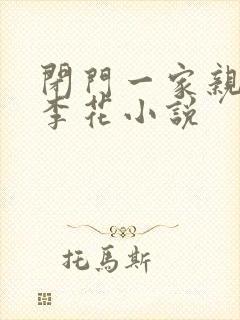 閉門一家親
李花小說
托馬斯